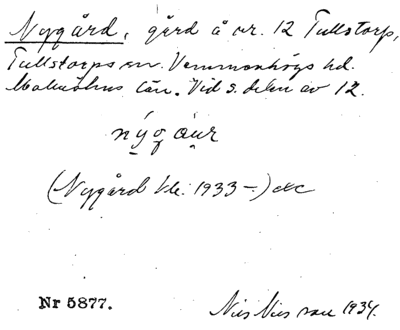 Nygård, gård å nr. 12 Tullstorp,
Tullstorps sn. Vemmenhögs hd.
Malmöhus län. Vid s. delen av 12.
(Nygård kle. 1933 –) etc
Nr 5877.
Nils Nilsson 1934.